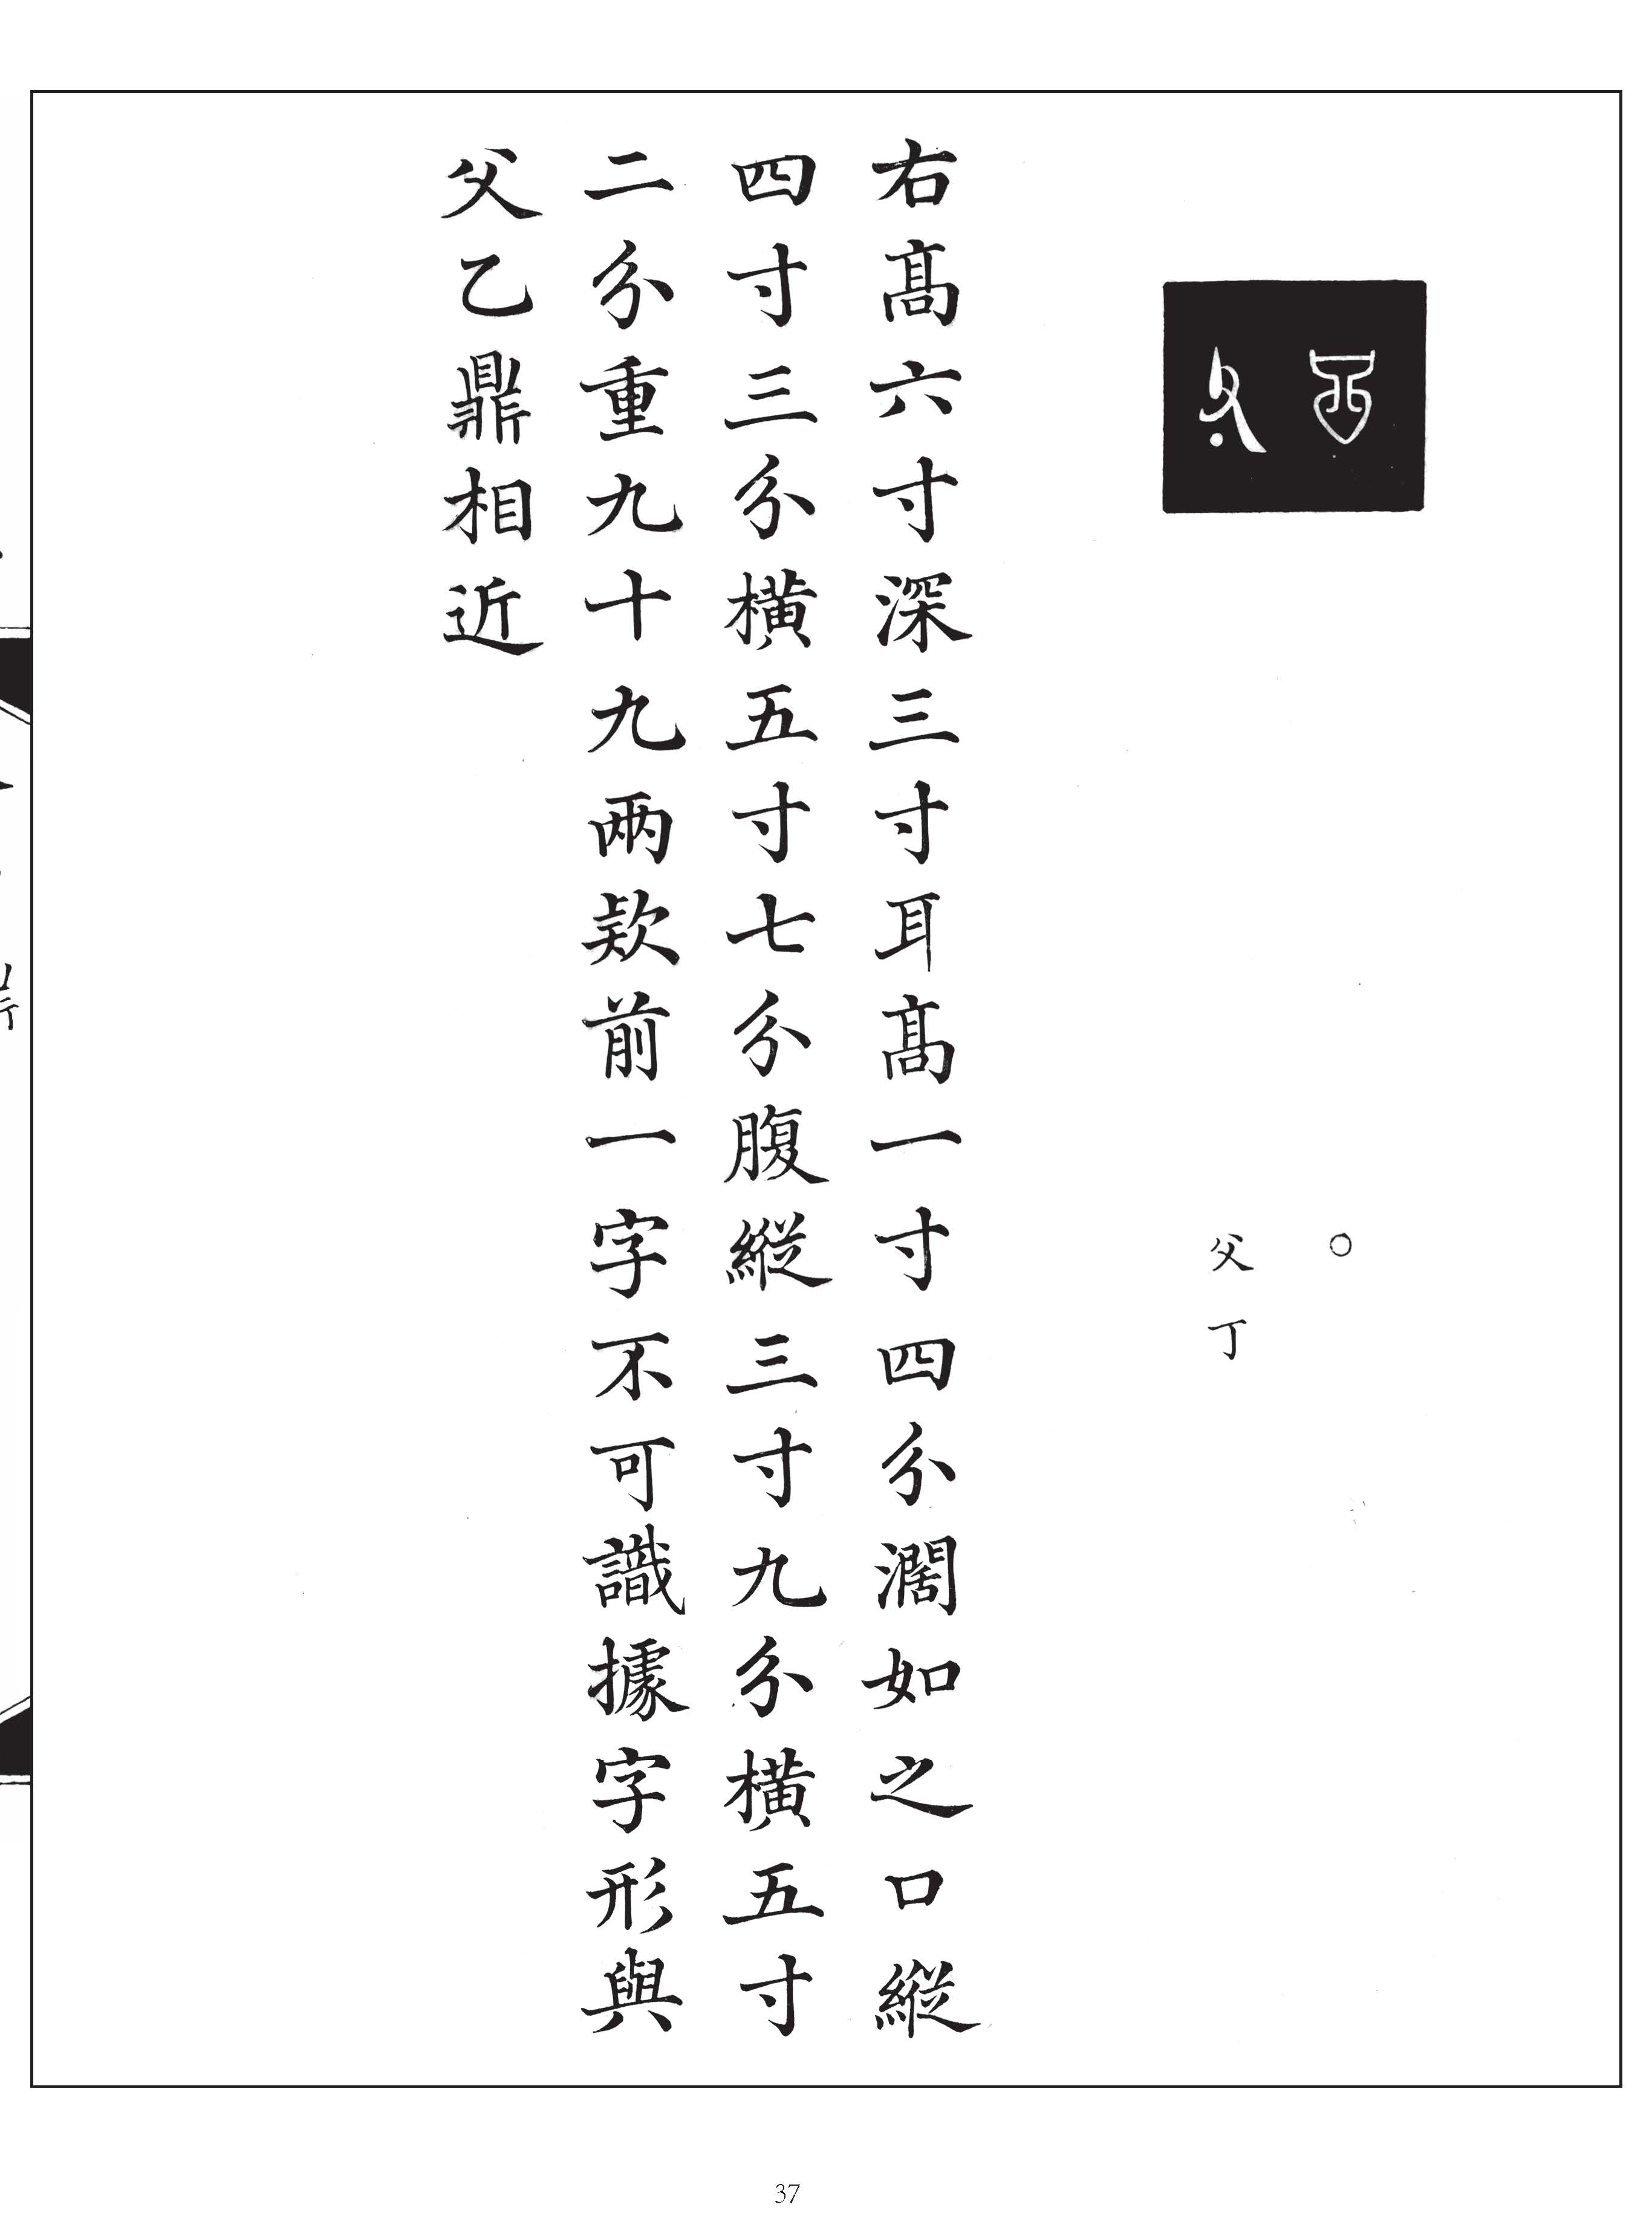 〇
父丁
右高六寸深三寸耳高一寸四分濶如之口縱
四寸三分橫五寸七分腹縱三寸九分橫五寸
二分重九十九兩款前一字不可識據字形與
父乙鼎相近
37